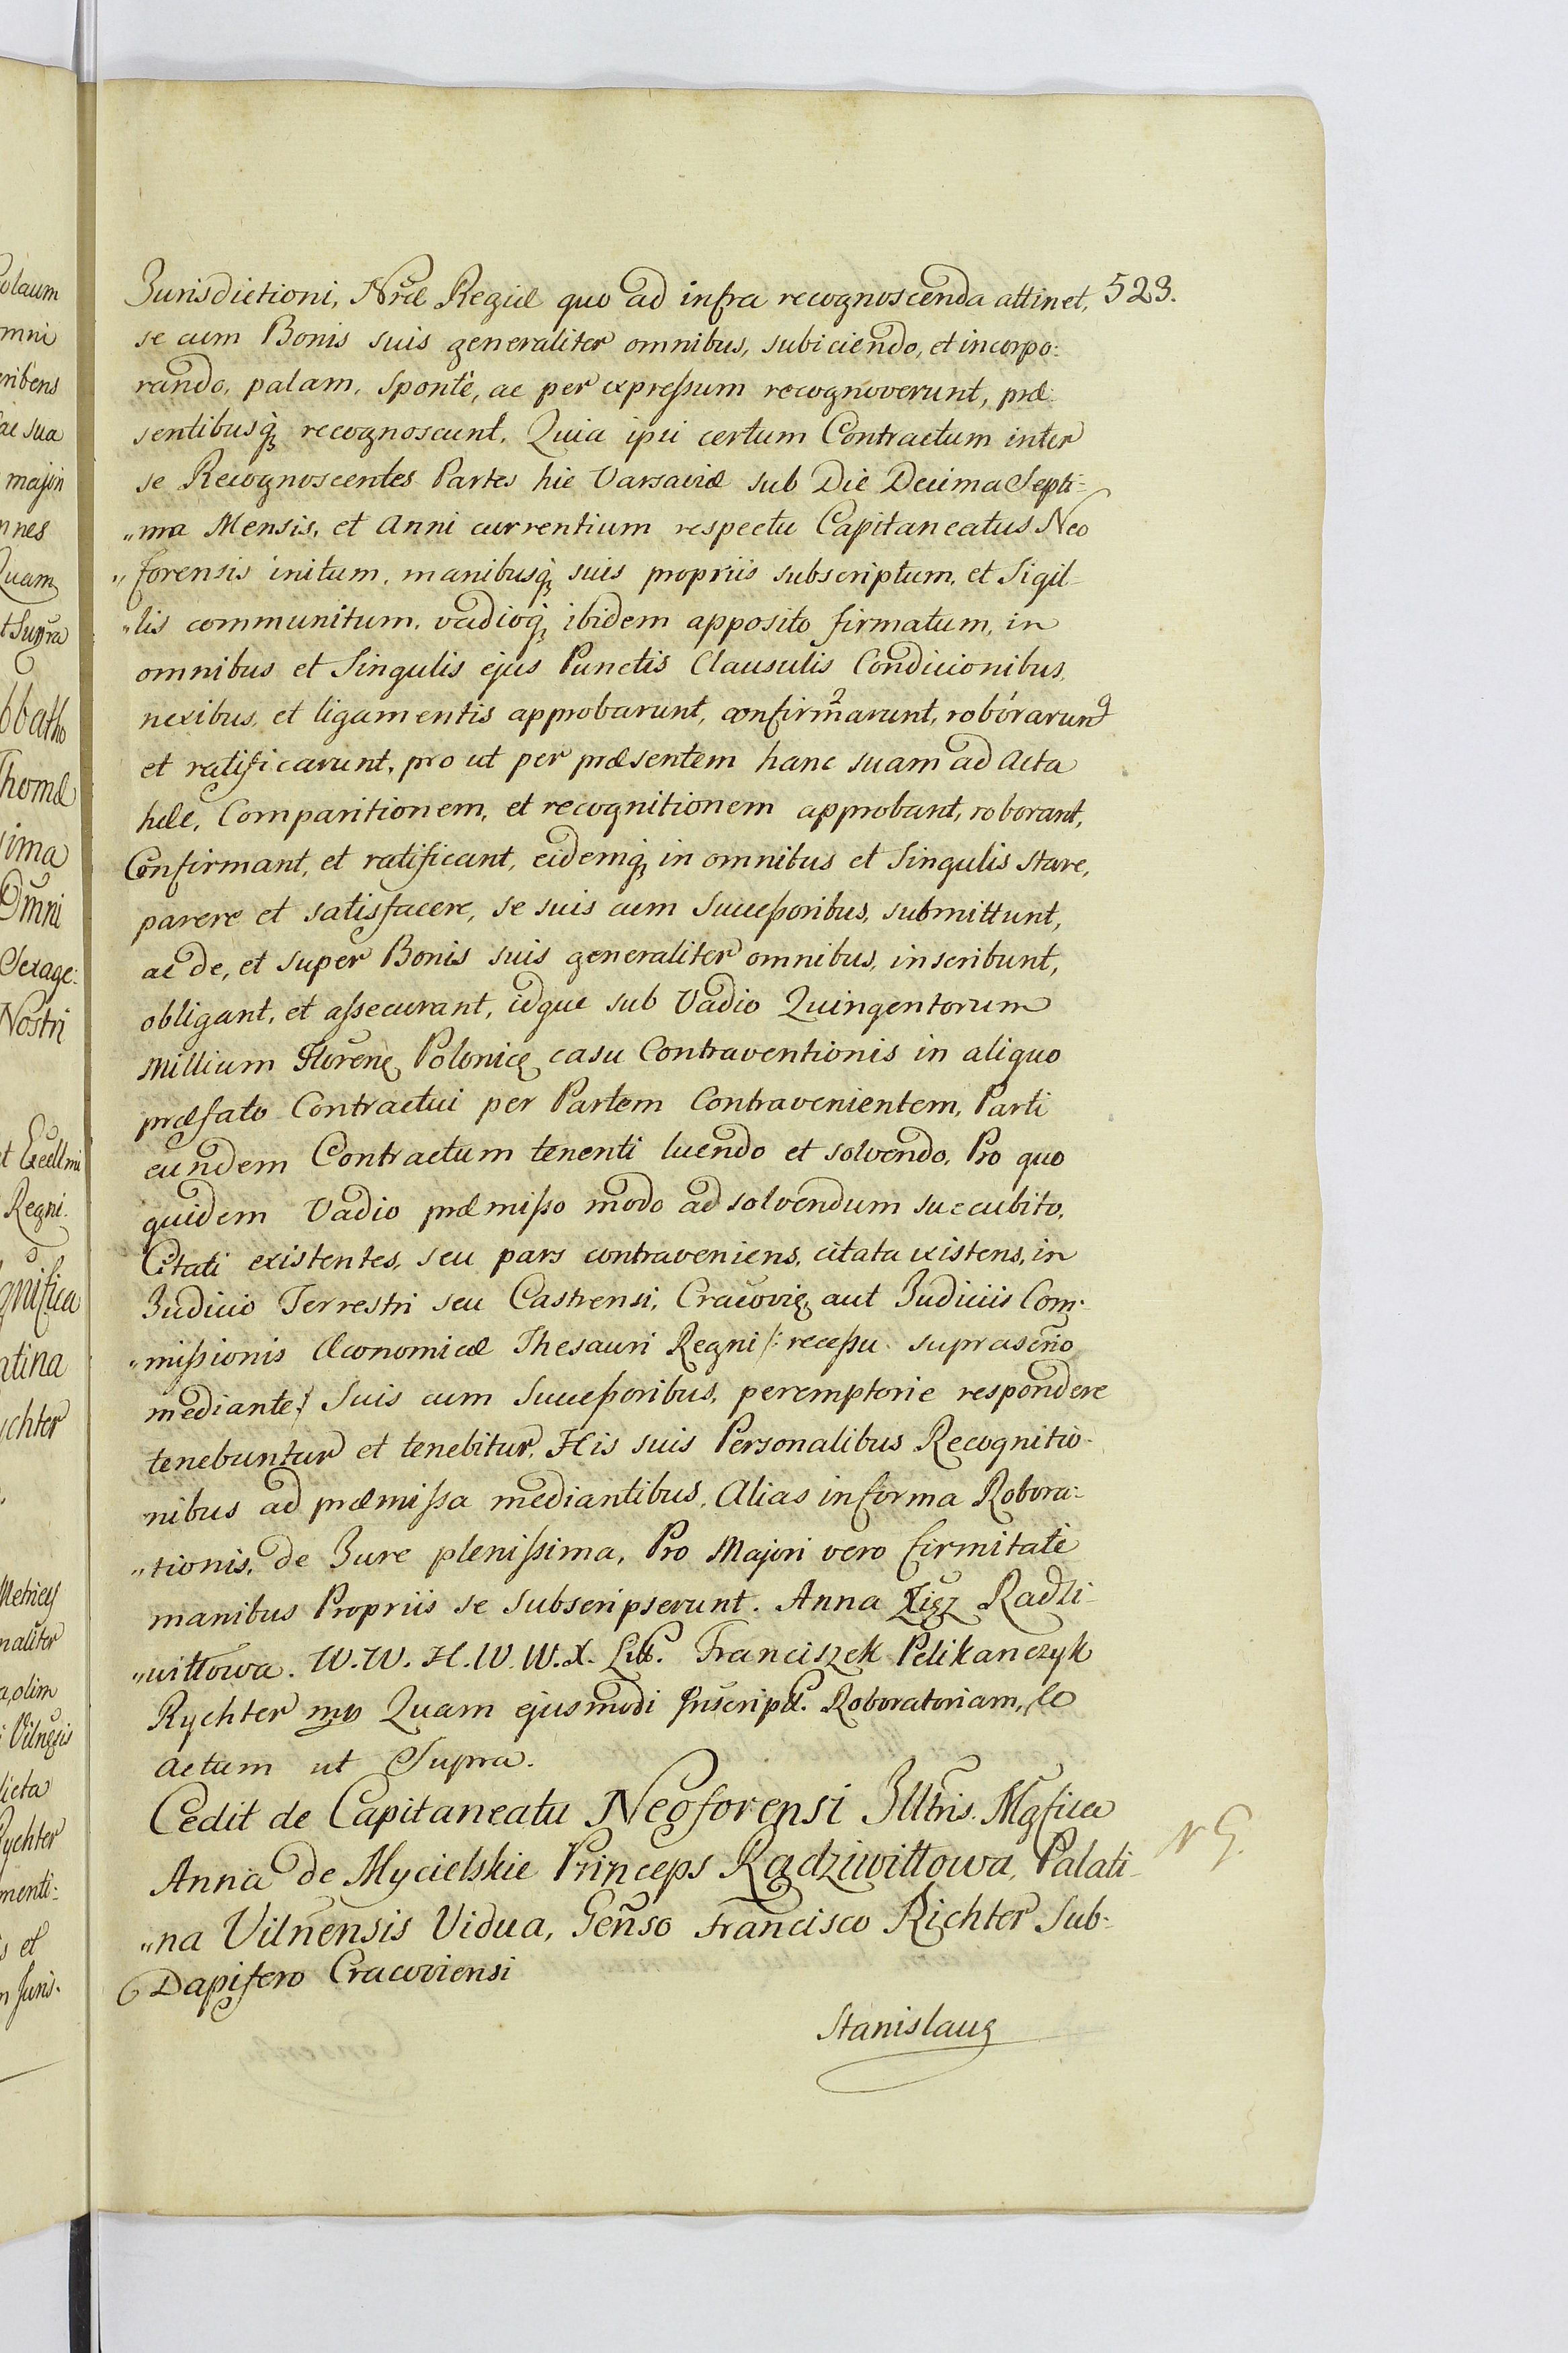 523.
Jurisdictioni, Nræ Regiæ quo ad infra recognoscenda attinet,
se cum Bonis suis generaliter omnibus, subiciendo, et incorpo:
rando, palam, sponte, ac per expressum recognoverunt, præ
sentibusq; recognoscunt, Quia ipsi certum Contractum inter
se Recognoscentes Partes hic Varsaviæ sub Die Decima Septi-
"ma Mensis, et Anni currentium respectu Capitaneatus Neo
"forensis initum, manibusq; suis propriis subscriptum, et Sigil-
"lis communitum, vadioq; ibidem apposito firmatum, in
omnibus et Singulis ejus Punctis Clausulis Condicionibus,
nexibus, et ligamentis approbarunt, confirmarunt, roborarunt
et ratificarunt, pro ut per præsentem hanc suam ad Acta
hæc, Comparitionem, et recognitionem approbant, roborant,
Confirmant, et ratificant, eidemq; in omnibus et Singulis stare,
parere et satisfacere, se suis cum Successoribus, submittunt,
ac de, et super Bonis suis generaliter omnibus, inscribunt,
obligant, et assecurant, idque sub Vadio Quingentorum
Millium Floren; Polonic; casu Contraventionis in aliquo
præfato Contractui per Partem Contravenientem, Parti
eundem Contractum tenenti luendo et solvendo, Pro quo
quidem Vadio præmisso modo ad solvendum succubito,
Citati existentes, seu pars contraveniens, citata existens, in
Judicio Terrestri seu Castrensi, Cracovię, aut Judiciis Com:
"missionis Œconomicæ Thesauri Regni /: recessu suprascrio
mediante :/ Suis cum Successoribus, peremptorie respondere
tenebuntur et tenebitur, His suis Personalibus Recognitio-
nibus ad præmissa mediantibus, Alias in forma Robora:
"tionis, de Jure plenissima, Pro Majori vero firmitate
manibus Propriis se Subscripserunt. Anna Xięż Radzi-
"wiłłowa. W. W. H. W. W. X. Litt. Franciszek Pelikanczyk
Rychter mp Quam ejusmodi Inscript. Roboratoriam, &c
Actum ut Supra.
Cedit de Capitaneatu Neoforensi Illtris. Mgfica
Anna de Mycielskie Princeps Radziwiłłowa, Palati-
"na Vilnensis Vidua, Genso Francisco Richter Sub-
Dapifero Cracoviensi
Stanislaus